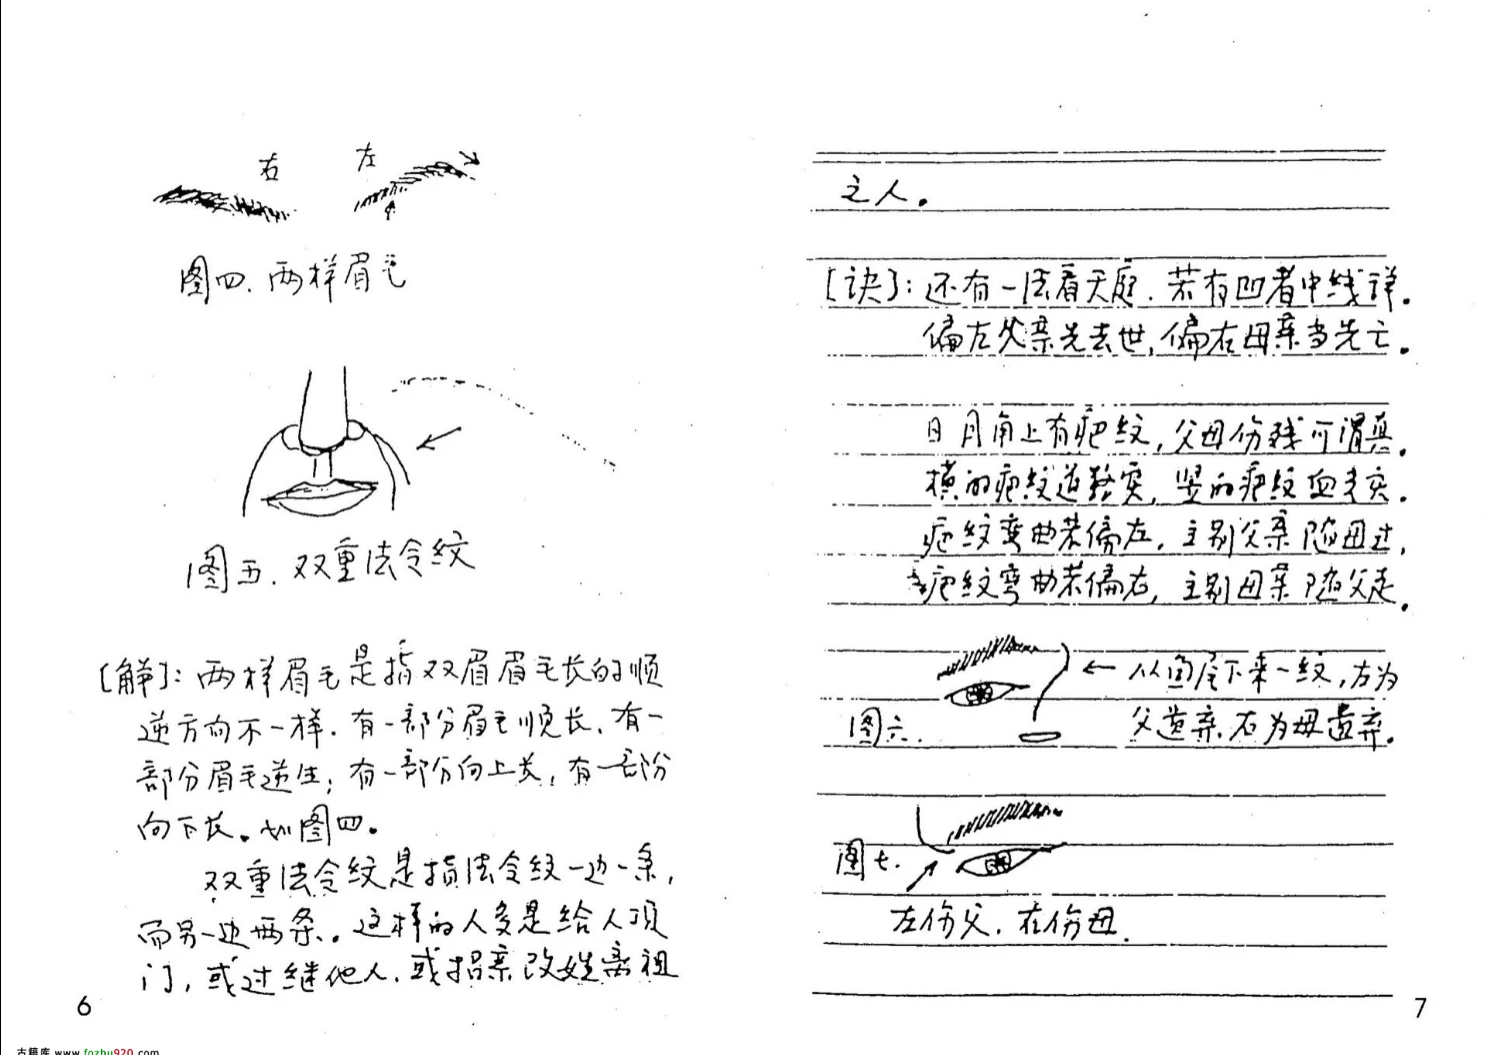 右 左
图四.两样眉毛
图五.双重法令纹
[解]:两样眉毛是指双眉眉毛长的顺
逆方向不一样.有一部分眉毛顺长、有一
部分眉毛逆生;有一部分向上长,有一部份
向下长。如图四。
双重法令纹是指法令纹一边一条,
而另一边两条。这样的人多是给人顶
门,或过继他人.或招亲改姓离祖
6
之人。
[诀]:还有一法看天庭.若有凹者中线详。
偏左父亲先去世,偏右母亲当先亡。
日月角上有疤纹,父母伤残可谓真。
横的疤纹道整实,竖的疤纹血考实。
疤纹弯曲若偏左.主别父亲随母过,
疤纹弯曲若偏右,主别母亲随父走。
从眉尾下来一纹,左为
图六.
父遗弃.右为母遗弃.
图七.
左伤父.右伤母.
7
古籍库 www.fozhu920.com